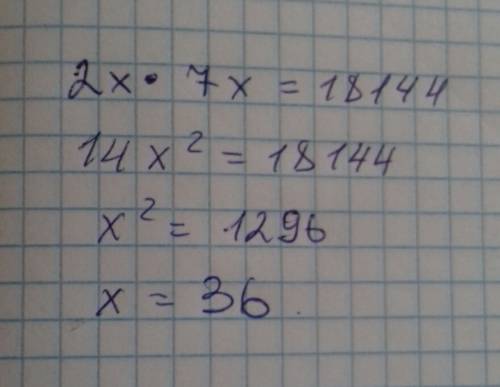 2x · 7x = 18144
14x² = 18144
x² = 1296
x = 36.